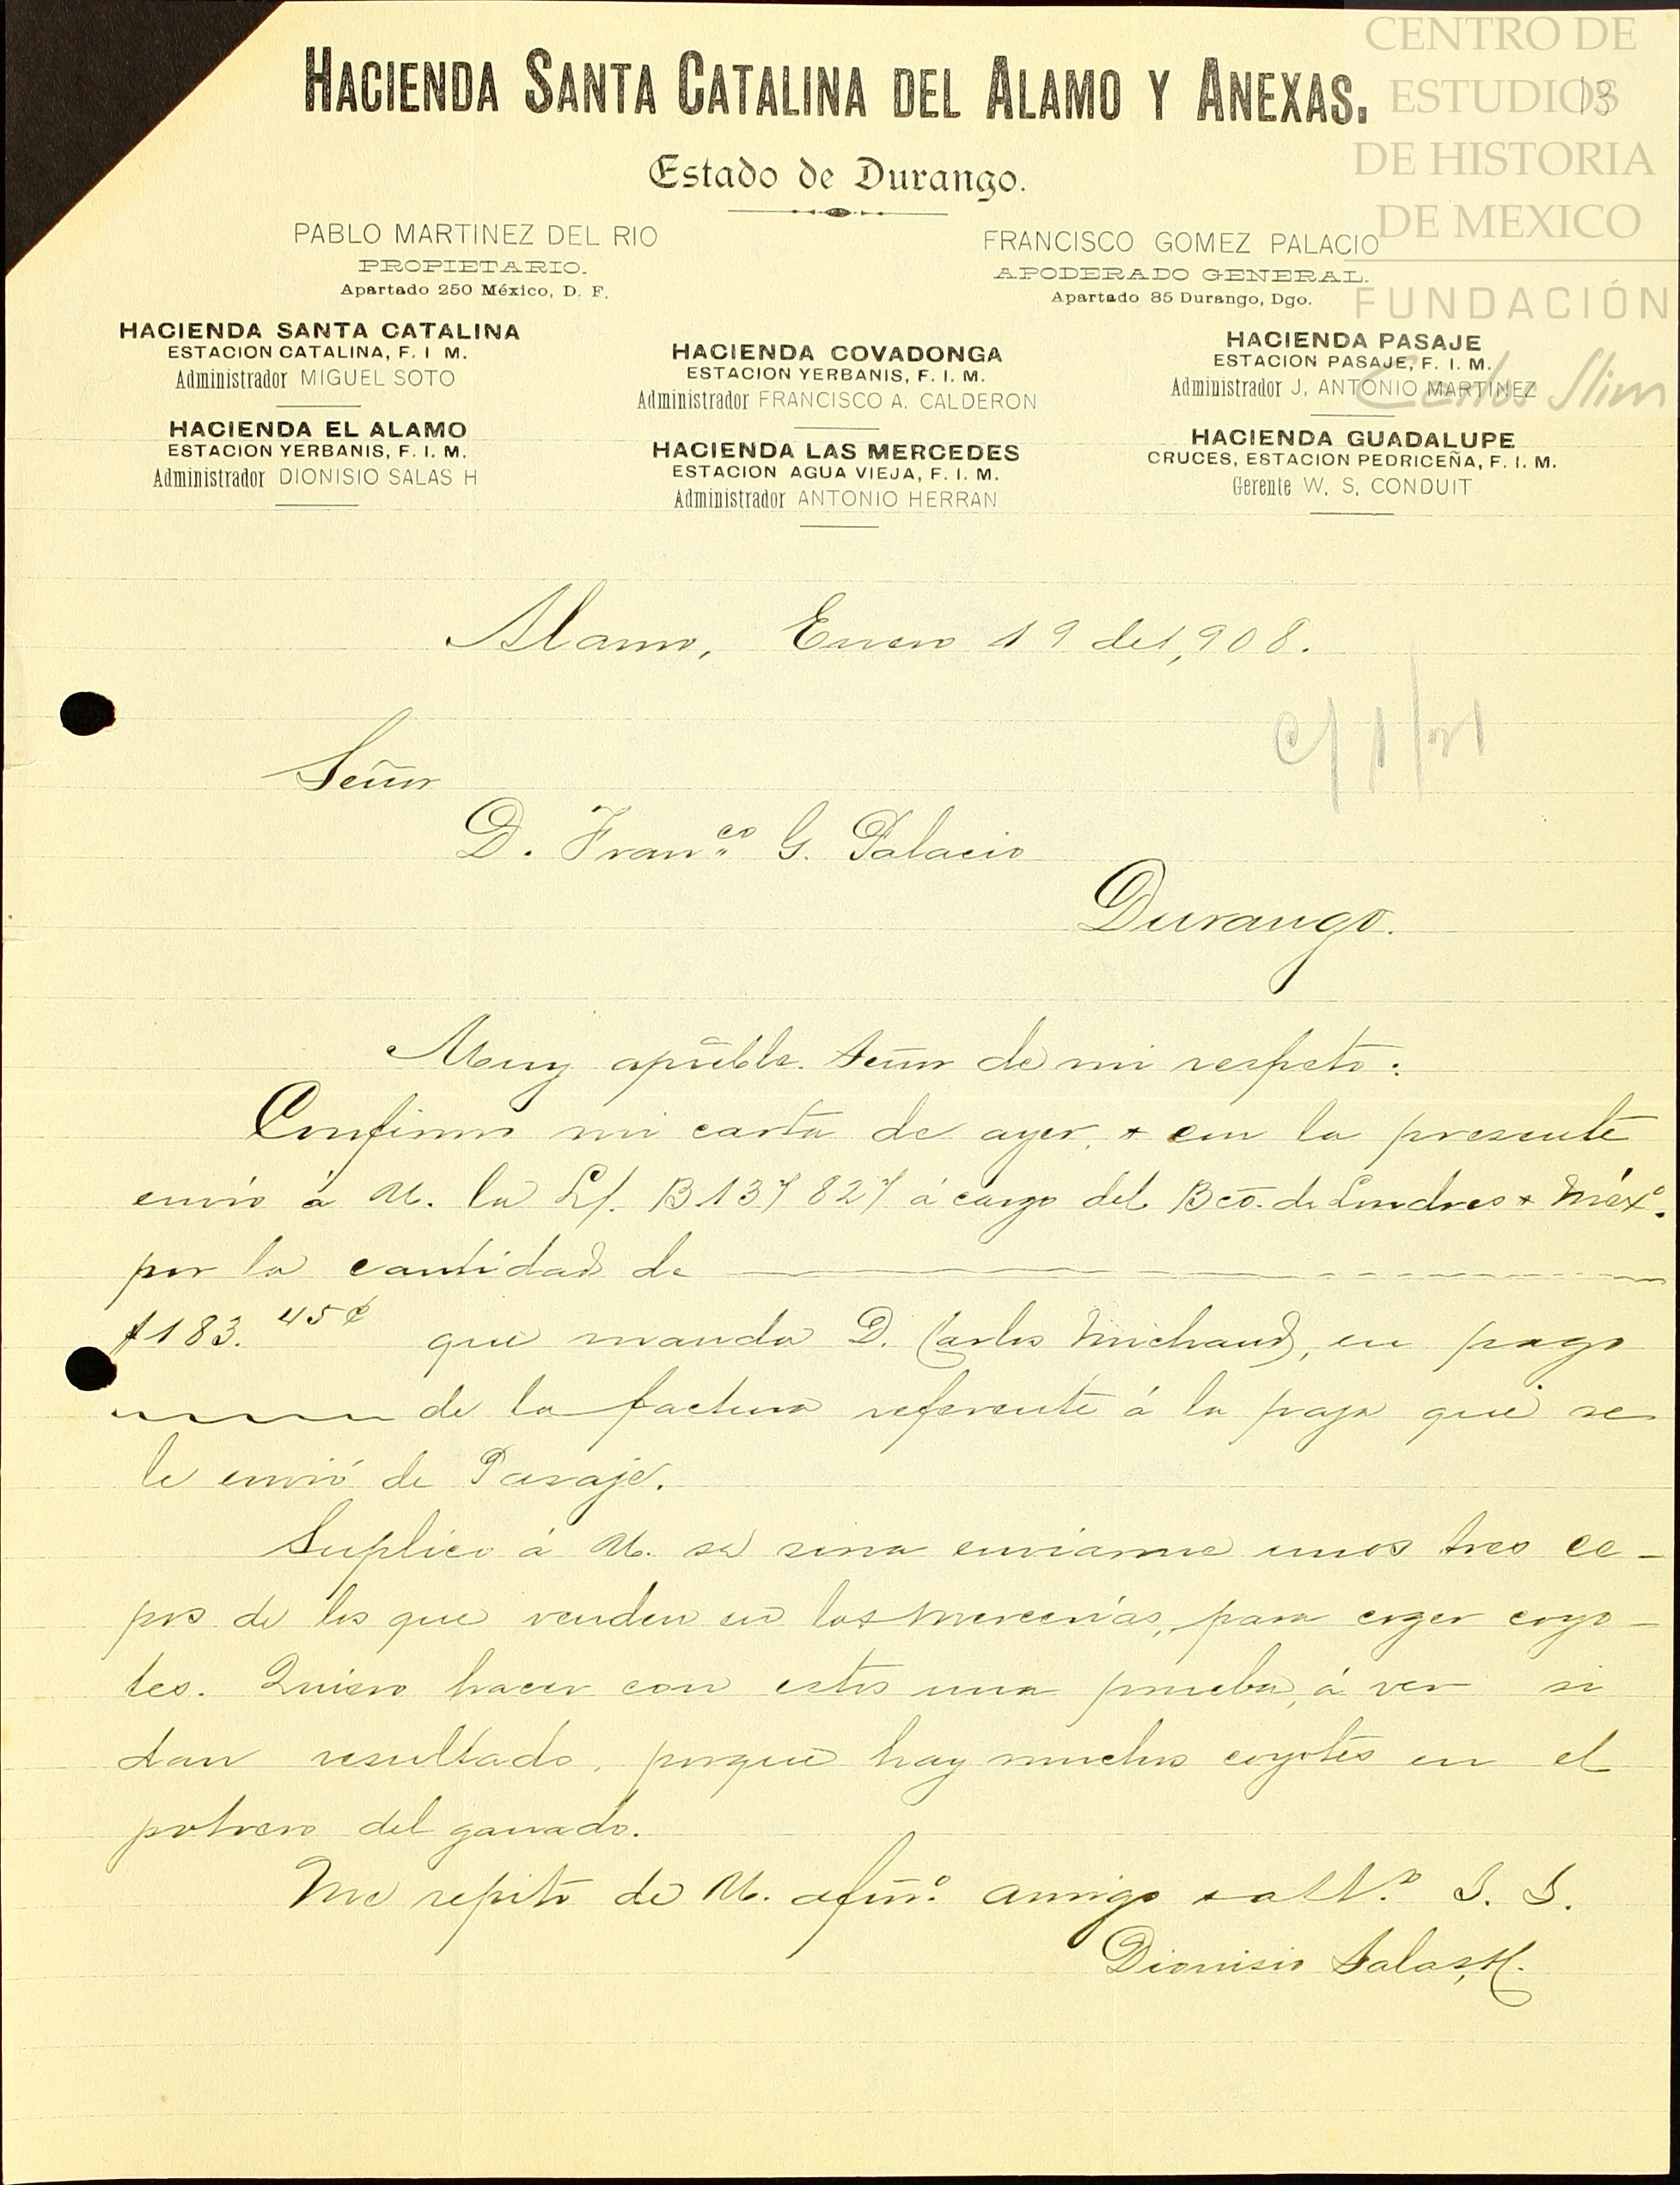 CENTRO DE
ESTUDIOS
DE HISTORIA
DE MEXICO
FUNDACIÓN
Carlos Slim
13
HACIENDA SANTA CATALINA DEL ALAMO Y ANEXAS.
Estado de Durango.
PABLO MARTINEZ DEL RIO
PROPIETARIO.
Apartado 250 México, D. F.
FRANCISCO GOMEZ PALACIO
APODERADO GENERAL.
Apartado 85 Durango, Dgo.
HACIENDA SANTA CATALINA
ESTACION CATALINA, F. I M.
Administrador MIGUEL SOTO
HACIENDA EL ALAMO
ESTACION YERBANIS, F. I. M.
Administrador DIONISIO SALAS H
HACIENDA COVADONGA
ESTACION YERBANIS, F. I. M.
Administrador FRANCISCO A. CALDERON
HACIENDA LAS MERCEDES
ESTACION AGUA VIEJA, F. I. M.
Administrador ANTONIO HERRAN
HACIENDA PASAJE
ESTACION PASAJE, F. I. M.
Administrador J, ANTONIO MARTINEZ
HACIENDA GUADALUPE
CRUCES, ESTACION PEDRICEÑA, F. I. M.
Gerente W. S. CONDUIT
Alamo, Enero 19 de 1,908.
Señor
D. Fran.co G. Palacio
Durango.
Muy apreble. Señor de mi respeto:
Confirmo mi carta de ayer, + con la presente
envio á U. la L/. B.137827 á cargo del Bco. de Londres + Méx.o
por la cantidad de
$183.45¢ que manda D. Carlos Michaud, en pago
de la factura referente á la paja que se
le envió de Pasaje.
Suplico á U. se sirva enviarme unos tres ce-
pos de los que venden en las mercerías, para coger coyo-
tes. Quiero hacer con estos una prueba, á ver si
dan resultado, porque hay muchos coyotes en el
potrero del ganado.
Me repito de U. afmo. amigo + att.o S. S.
Dionisio Salas H.